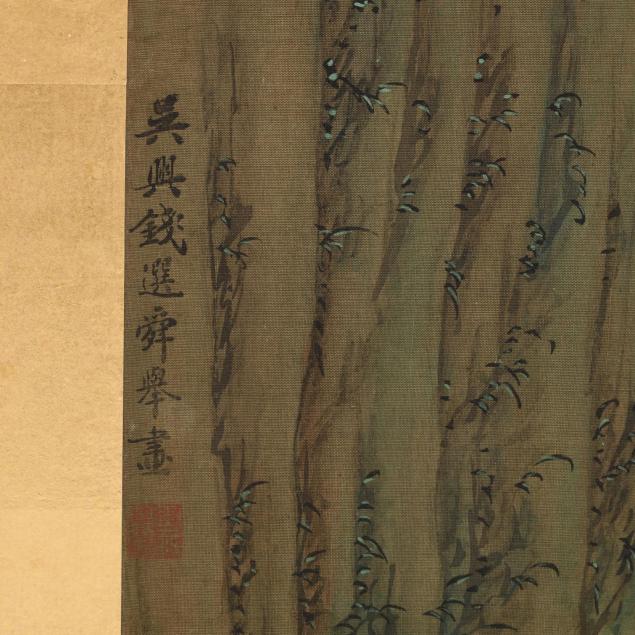 吳興錢選舜舉畫